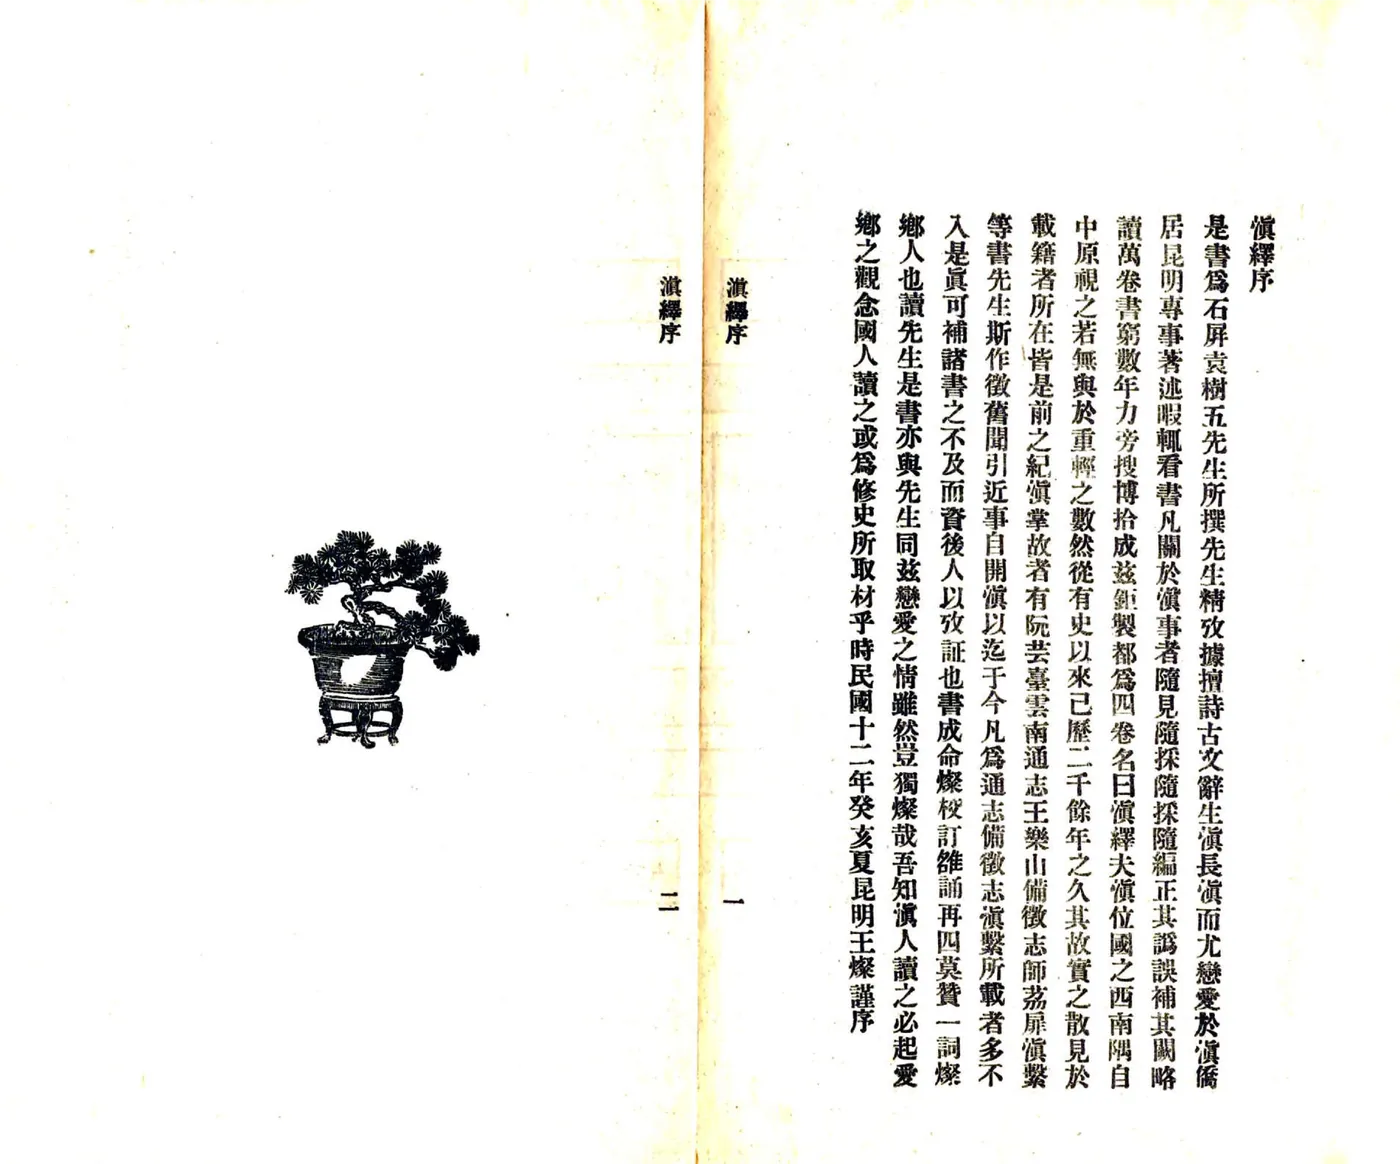 滇繹序
是書爲石屏袁樹五先生所撰先生精攷據擅詩古文辭生滇長滇而尤戀愛於滇僑
居昆明專事著述暇輒看書凡關於滇事者隨見隨採隨採隨編正其譌誤補其闕略
讀萬卷書窮數年力旁搜博拾成兹鉅製都爲四卷名曰滇繹夫滇位國之西南隅自
中原視之若無與於重輕之數然從有史以來已歷二千餘年之久其故實之散見於
載籍者所在皆是前之紀滇掌故者有阮芸臺雲南通志王樂山備徵志師荔扉滇繫
等書先生斯作徵舊聞引近事自開滇以迄于今凡爲通志備徵志滇繫所載者多不
入是眞可補諸書之不及而資後人以攷証也書成命燦校訂雒誦再四莫贊一詞燦
鄉人也讀先生是書亦與先生同兹戀愛之情雖然豈獨燦哉吾知滇人讀之必起愛
鄉之觀念國人讀之或爲修史所取材乎時民國十二年癸亥夏昆明王燦謹序
滇繹序
一
滇繹序
二